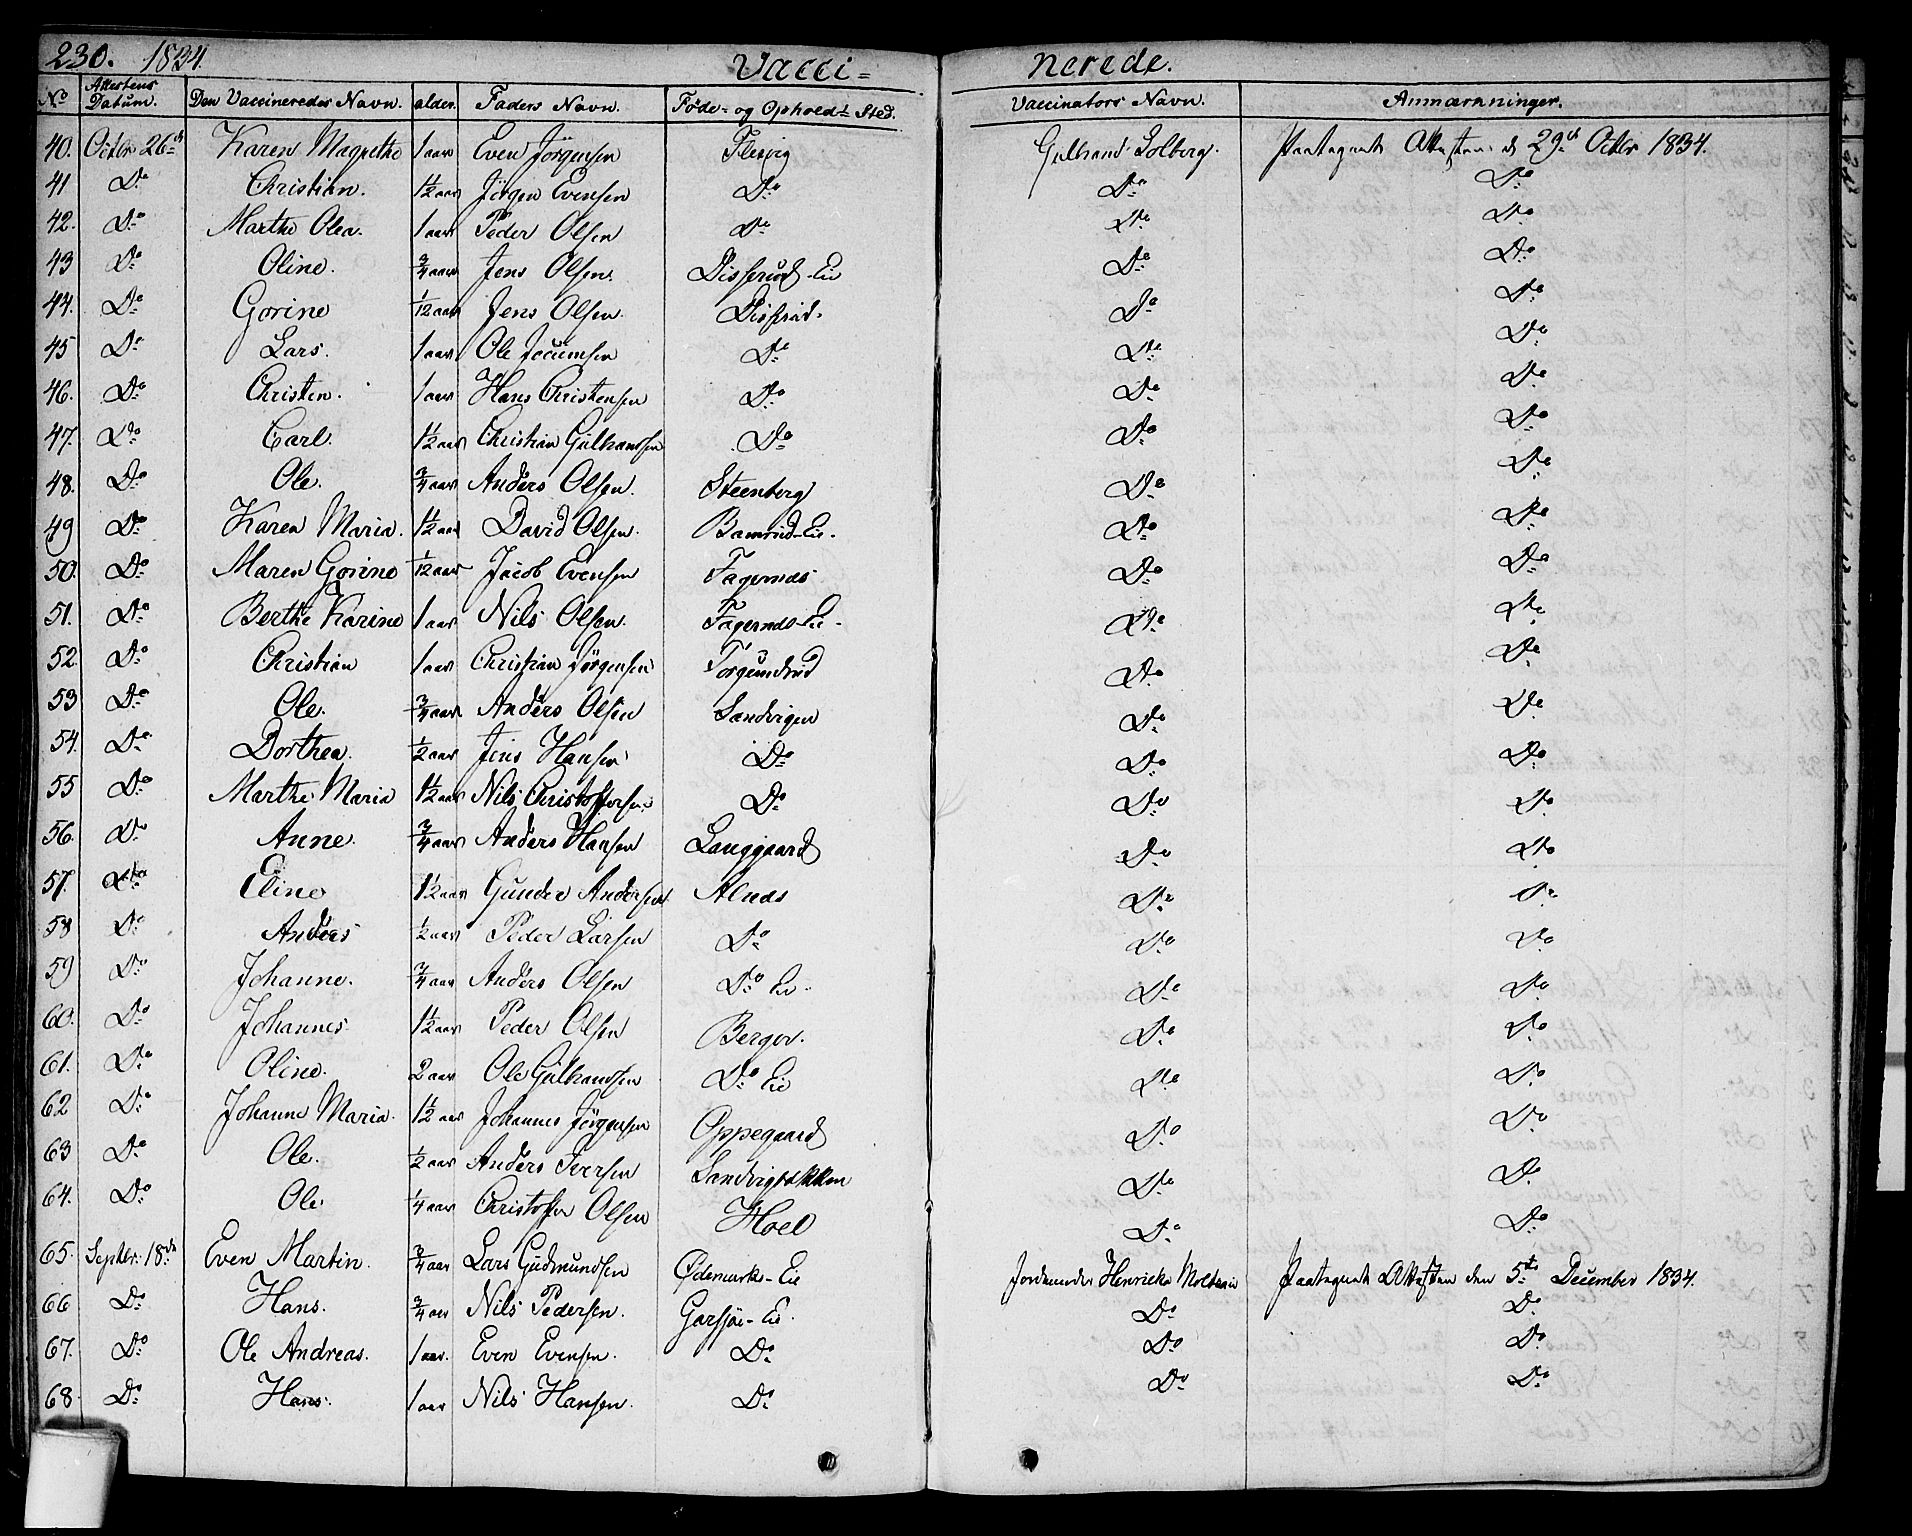 230. 1834. Vacci= nerede.
No Attestens Datum. Den Vaccineredes Navn. alder. Faders Navn. Föde- og Ophold's Sted. Vaccinators Navn. Anmærkninger.
40. Octbr 26de Karen Magrethe 1 aar Even Jörgensen Flesvig Gulbrand Solberg. Paategnet Attesten d 29de Octbr 1834.
41 Do Christian. 1½ aar Jörgen Evensen Do Do Do
42. Do Marthe Olea. 1 aar Peder Olsen Do Do Do
43 Do Oline. ¾ aar Jens Olsen. Disserud-Eie Do Do
44. Do Gorine 1/12 aar Jens Olsen. Disserud. Do Do
45 Do Lars. 1 aar Ole Jocumsen Do Do Do
46. Do Christen. 1 aar Hans Christensen Do Do Do
47. Do Carl. 1½ aar Christian Gulbrandsen Do Do Do
48. Do Ole. ¾ aar Anders Olsen. Steenberg Do Do
49 Do Karen Maria. 1½ aar David Olsen. Bamrud-Eie. Do Do
50. Do Maren Gorine 1/12 aar Jacob Evensen Fagernæs Do Do
51. Do Berthe Karine 1 aar Nils Olsen. Fagernæs-Eie. Do Do
52. Do Christian 1 aar Christian Jörgensen Torgundrud Do Do
53 Do Ole. ¾ aar Anders Olsen Sandvigen Do Do
54. Do Dorthea. ½ aar Jens Hansen Do Do Do
55 Do Marthe Maria 1½ aar Nils Christoffersen Do Do Do
56. Do Anne. ¾ aar Anders Hansen Langgaard Do Do
57. Do Eline 1½ aar Gunder Andersen Alnæs Do Do
58 Do Anders ½ aar Peder Larsen Do Do Do
59 Do Johanne. ¾ aar Anders Olsen Do Eie. Do Do
60. Do Johannes 1½ aar Peder Olsen Berger. Do Do
61. Do Oline. 2 aar Ole Gulbrandsen Do Eie Do Do
62 Do Johanne Maria. 1½ aar Johannes Jörgensen Oppegaard Do Do
63 Do Ole. ½ aar Anders Iversen Sandvigbakken Do Do
64. Do Ole ¼ aar Christoffer Olsen Hoel Do Do
65. Septbr. 18de Even Martin. ¾ aar Lars Gudmundsen Ødemarks-Eie Jordemoder Henricke Moltzau Paategnet Attesten den 5te December 1834.
66 Do Hans. ¾ aar Nils Pedersen. Garsjøe-Eie. Do Do
67. Do Ole Andreas. 1 aar. Even Evensen. Do Do Do
68 Do Hans. 1 aar Nils Hansen. Do Do Do